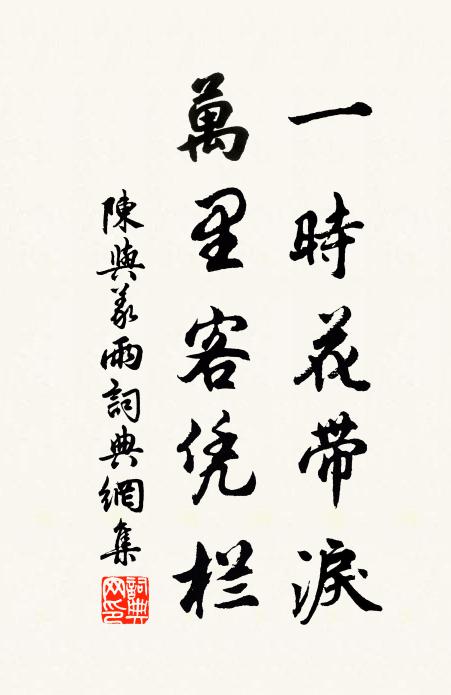 一時花带淚
萬里客凭栏
陳與義雨詞典網集
詞典网印